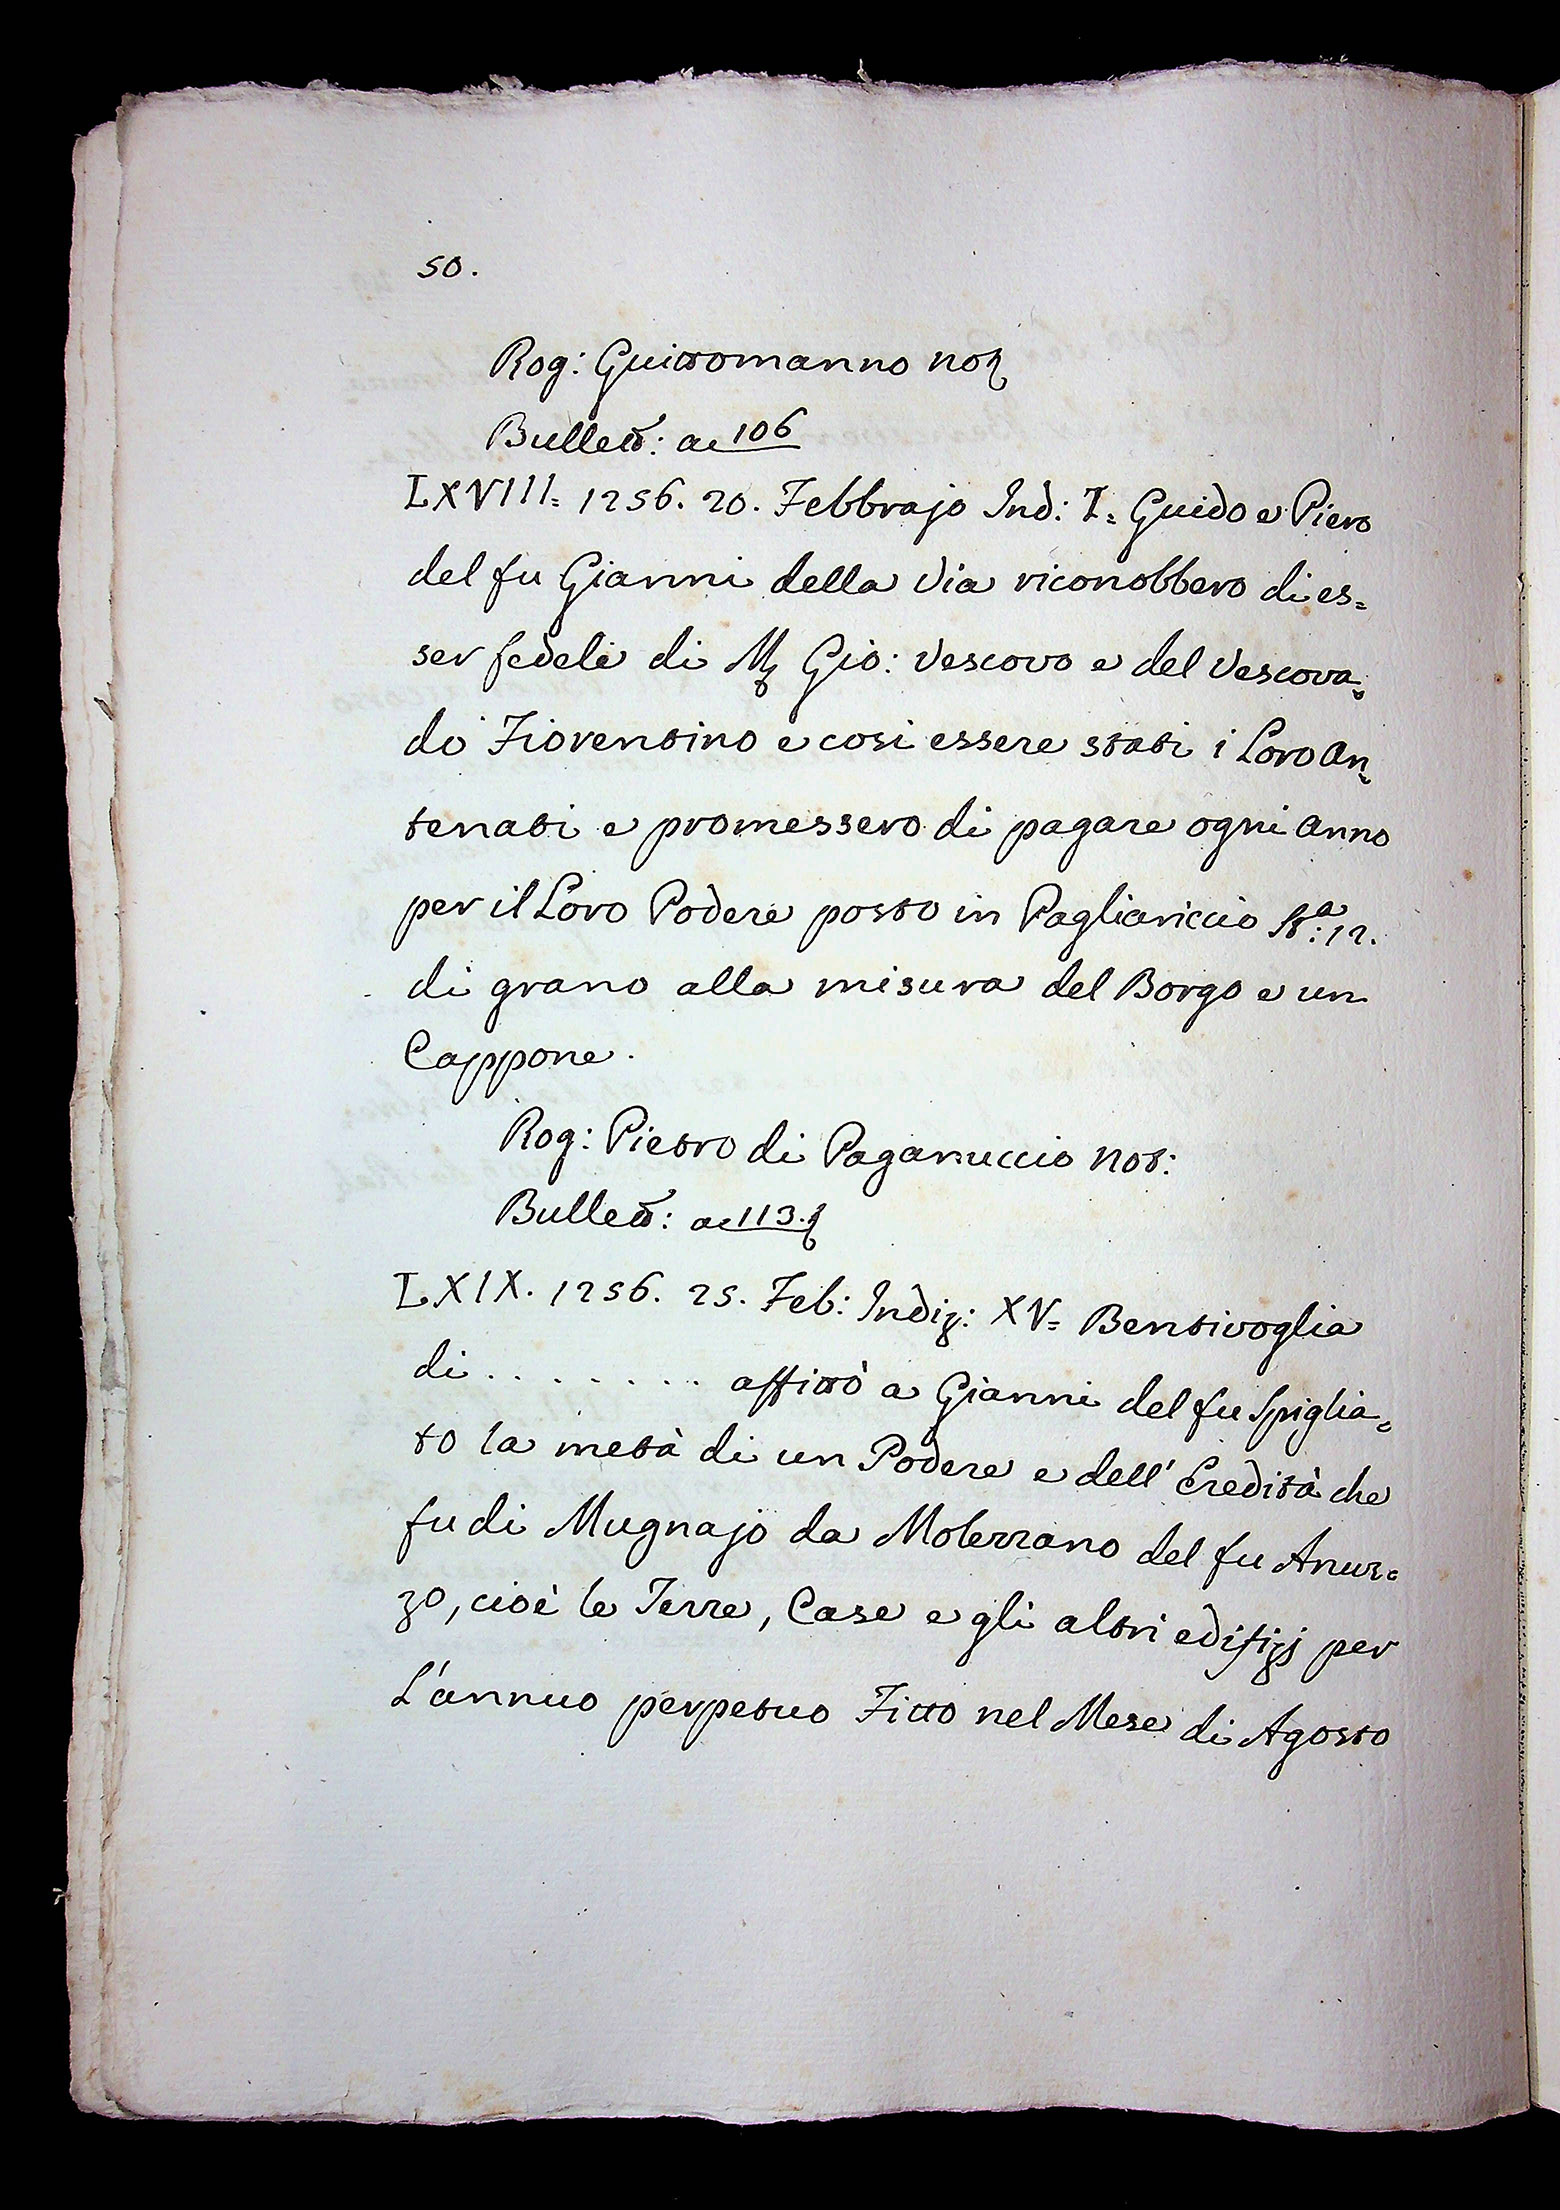 50.
Rog: Guittomanno not
Bullett: ac 106
LXVIII= 1256. 20. Febbrajo Ind: I= Guido e Piero
del fu Gianni della Via riconobbero di es=
ser fedeli di M Gio: Vescovo e del Vescova=
do Fiorentino e così essere stati i Loro An=
tenati e promessero di pagare ogni anno
per il Loro Podere posto in Pagliariccio St.ª: 12.
di grano alla misura del Borgo e un
Cappone.
Rog: Pietro di Paganuccio Not:
Bullett: ac 113.
LXIX. 1256. 25. Feb: Indiz: XV= Bentivoglia
di ........ affittò a Gianni del fu Spiglia=
to la metà di un Podere e dell' Eredità che
fu di Mugnajo da Molezzano del fu
zo, cioè le Terre, Case e gli altri edifizj per
L'annuo perpetuo Fitto nel Mese di Agosto